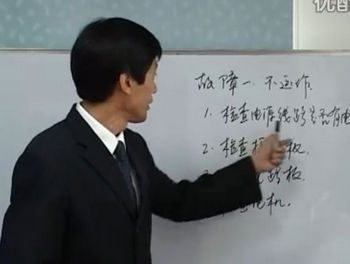 故障一. 不运作.
1. 检查电源线路是否有电
2. 检查 板.
路板.
电机.